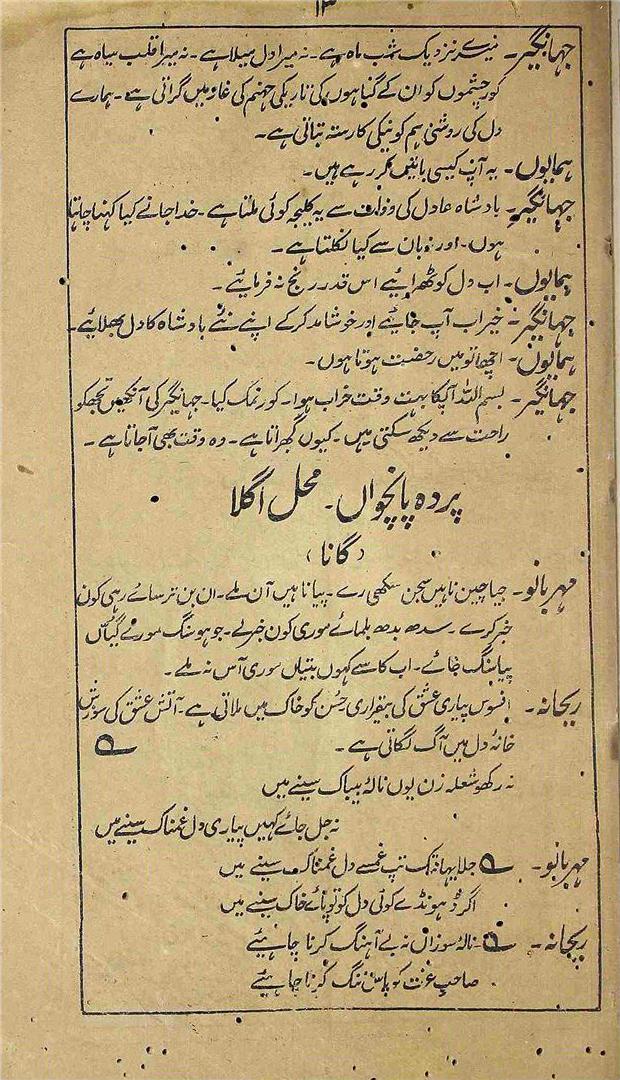 ۱۳
جہانگیر۔ میرے نزدیک شب ماہ ہے۔ نہ میرا دل میلا ہے۔ نہ میرا قلب سیاہ ہے
کور چشموں کو ان کے گناہوں کی تاریکی جہنم کی غار میں گراتی ہے۔ ہمارے
دل کی روشنی ہم کو نیکی کا رستہ بتاتی ہے۔
ہمایوں۔ یہ آپ کیسی باتیں کر رہے ہیں۔
جہانگیر۔ بادشاہ عادل کی وزارت سے یہ کلیجہ کوئی ملتا ہے۔ خدا جانے کیا کہنا چاہتا
ہوں۔ اور زبان سے کیا نکلتا ہے۔
ہمایوں۔ اب دل کو ٹھرائیے اس قدر رنج نہ فرمائیے۔
جہانگیر۔ خیر اب آپ جائیے اور خوشامد کر کے اپنے نئے بادشاہ کا دل بھلائیے۔
ہمایوں۔ اچھا تو میں رخصت ہوتا ہوں۔
جہانگیر۔ بسم اللہ آپکا بہت وقت خراب ہوا۔ کور نمک کیا۔ جہانگیر کی آنکھیں تجھکو
راحت سے دیکھ سکتی ہیں۔ کیوں گھبراتا ہے۔ وہ وقت بھی آجاتا ہے۔
پردہ پانچواں۔ محل اگلا
(گانا)
مہربانو۔ جیا چین ناہیں سجن سکھی رے۔ پیا ناہیں آن ملے۔ ان بن ترسائے رہی کون
خبر کرے۔ سدھ بدھ بلمائے موری کون خبر لے۔ جو ہو سنگ مورے گیاں
پیا سنگ جائے۔ اب کا سے کہوں بتیاں موری آس نہ ملے۔
ریحانہ۔ افسوس پیاری عشق کی بیقراری حسن کو خاک میں ملاتی ہے۔ آتش عشق کی سوزش
خانۂ دل میں آگ لگاتی ہے۔ ؎
نہ رکھو شعلہ زن یوں نالۂ بیباک سینے میں
نہ جل جائے کہیں پیاری دل غمناک سینے میں
مہربانو۔ ؎ جلا یہانتک تپ غم سے دل غمناک سینے میں
اگر ڈہونڈے کوئی دل کو تو پائے خاک سینے میں
ریحانہ۔ ؎ نالۂ سوزاں نہ بے آہنگ کرنا چاہئیے
صاحب عزت کو پاس ننگ کرنا چاہئیے